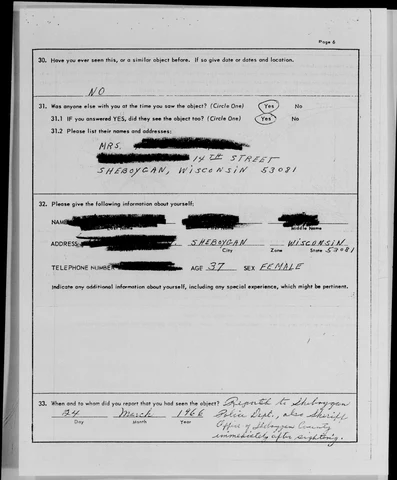 Page 6
30. Have you ever seen this, or a similar object before. If so give date or dates and location.
NO
31. Was anyone else with you at the time you saw the object? (Circle One) Yes No
31.1 IF you answered YES, did they see the object too? (Circle One) Yes No
31.2 Please list their names and addresses:
MRS.
14TH STREET
SHEBOYGAN, WISCONSIN 53081
32. Please give the following information about yourself:
NAME
Middle Name
ADDRESS SHEBOYGAN WISCONSIN
City Zone State 53081
TELEPHONE NUMBER AGE 37 SEX FEMALE
Indicate any additional information about yourself, including any special experience, which might be pertinent.
33. When and to whom did you report that you had seen the object? Reported to Sheboygan
24 March 1966 Police Dept., also Sheriff
Day Month Year Office of Sheboygan County
immediately after sighting.